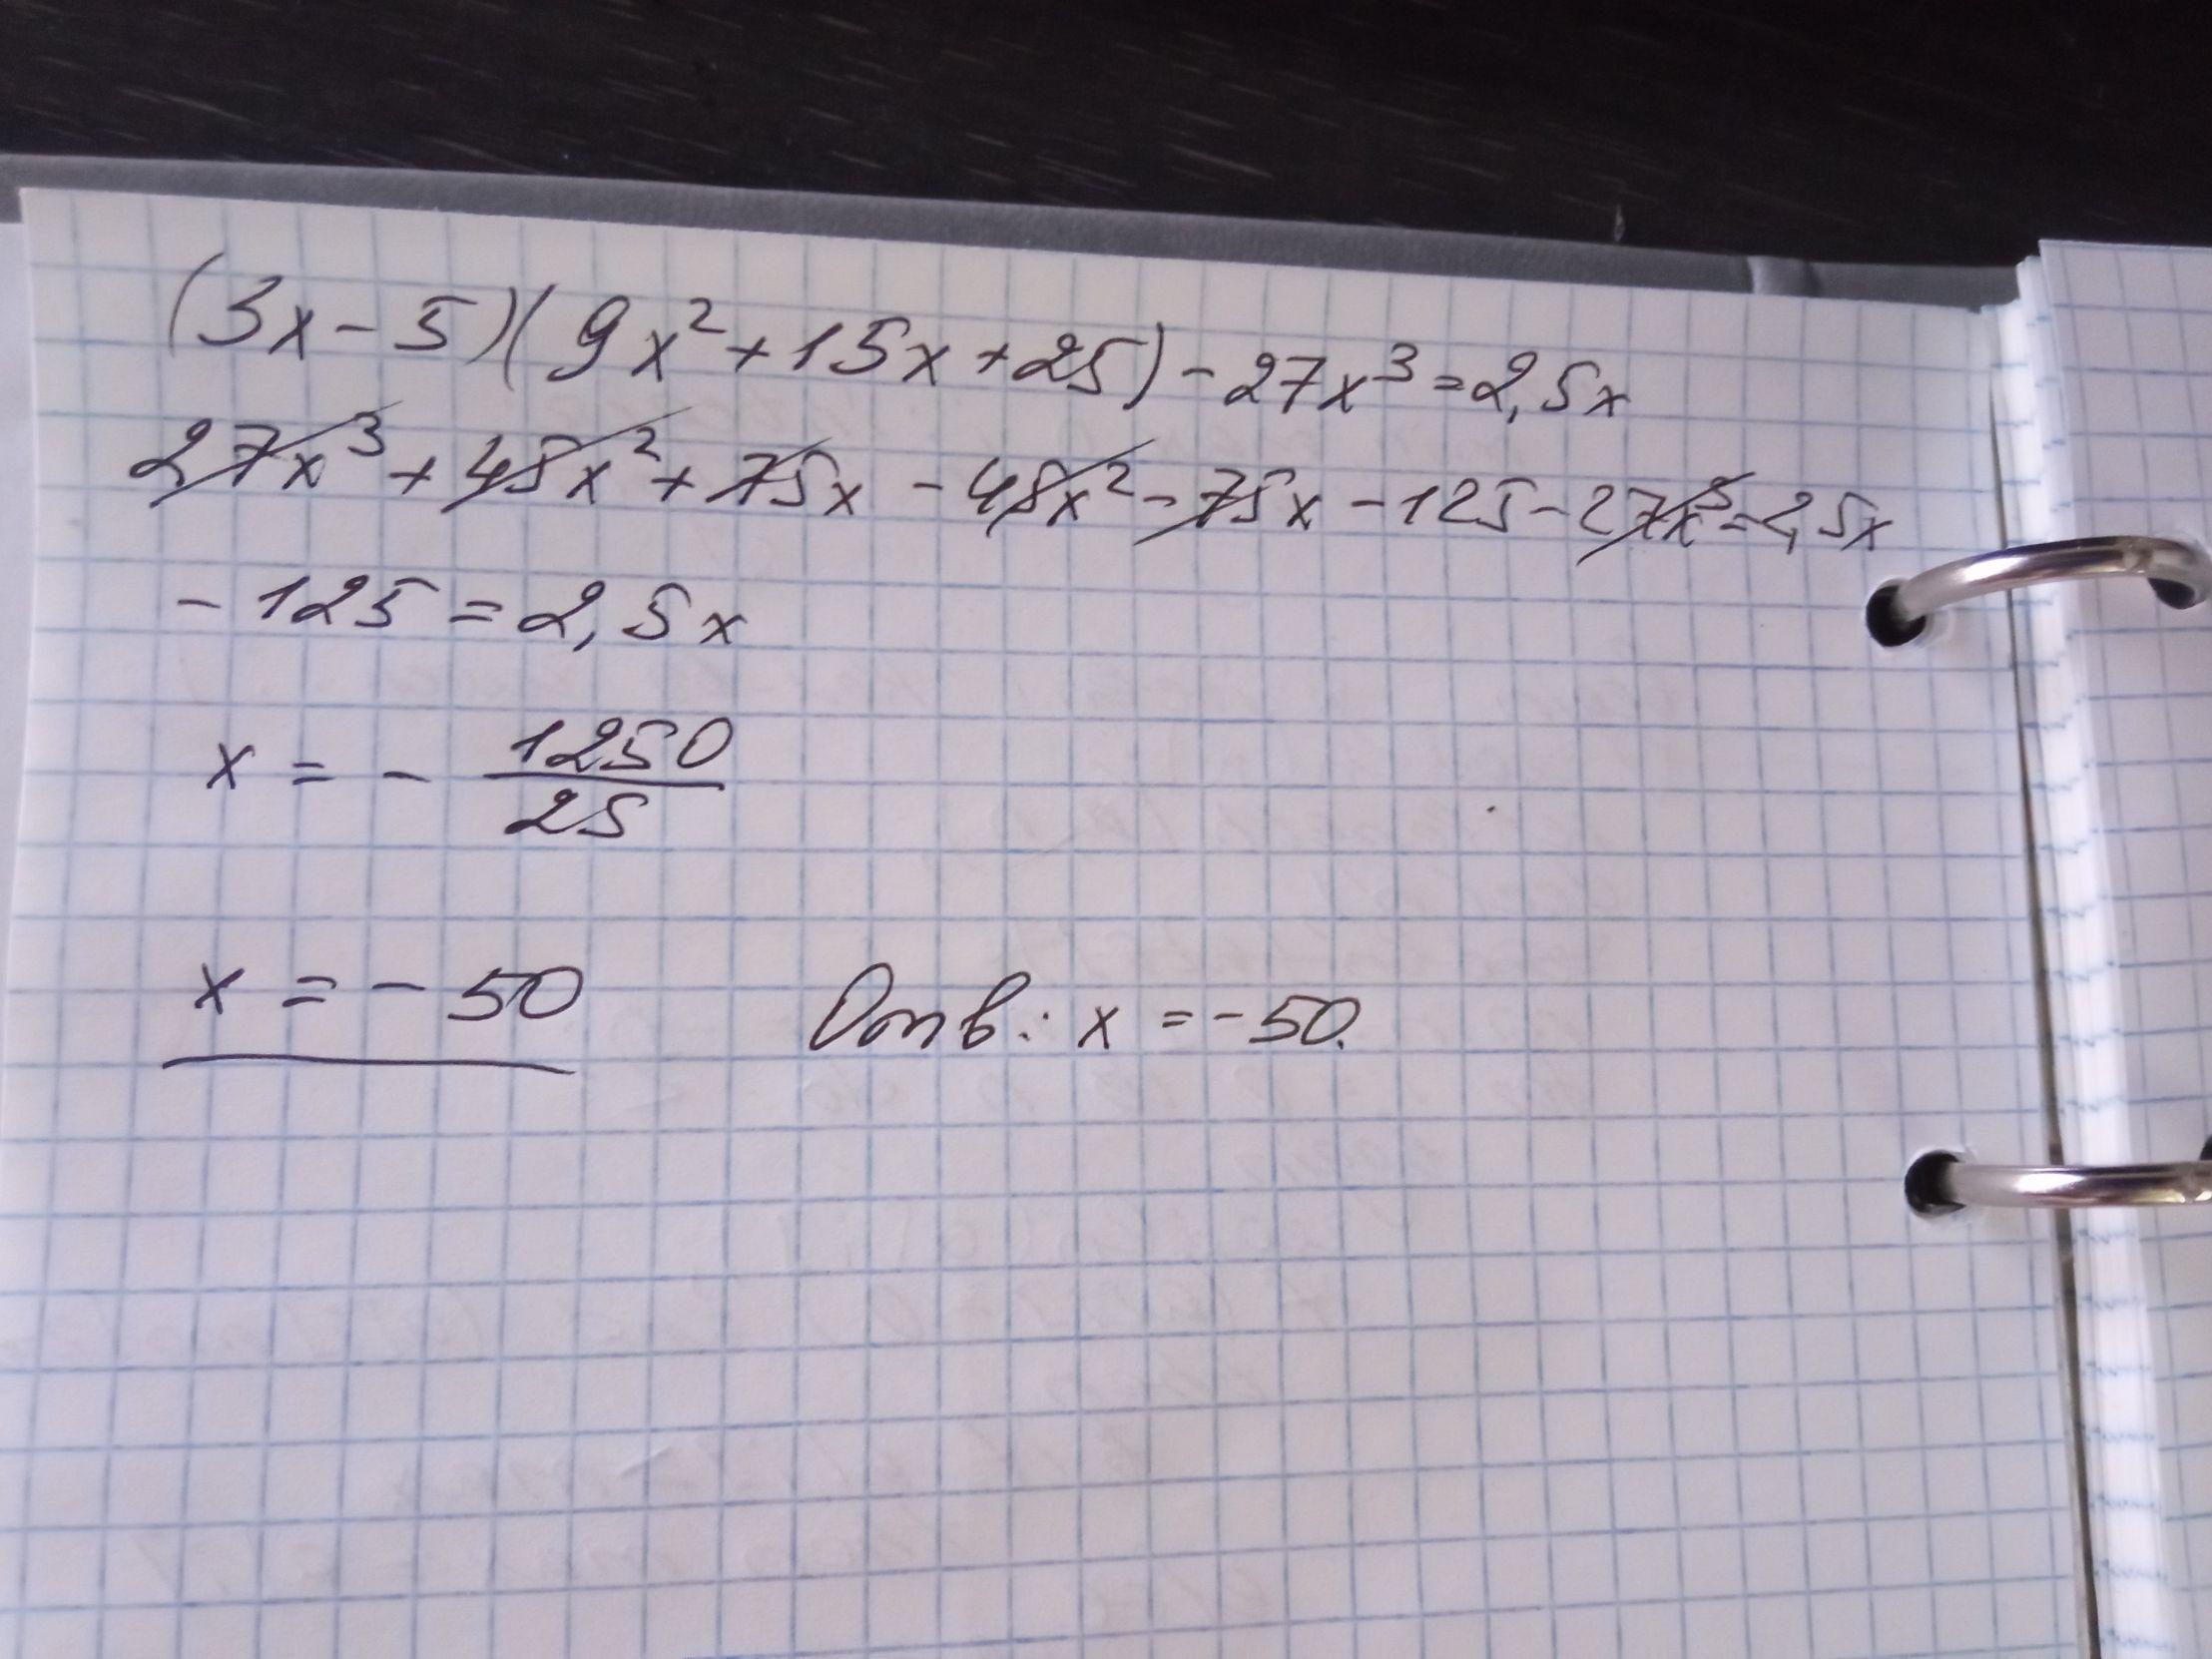 (3x-5)(9x²+15x+25)-27x³=2,5x
27x³+45x²+75x-45x²-75x-125-27x³=2,5x
-125=2,5x
x = - 1250/25
x = - 50
Отв: x = -50.